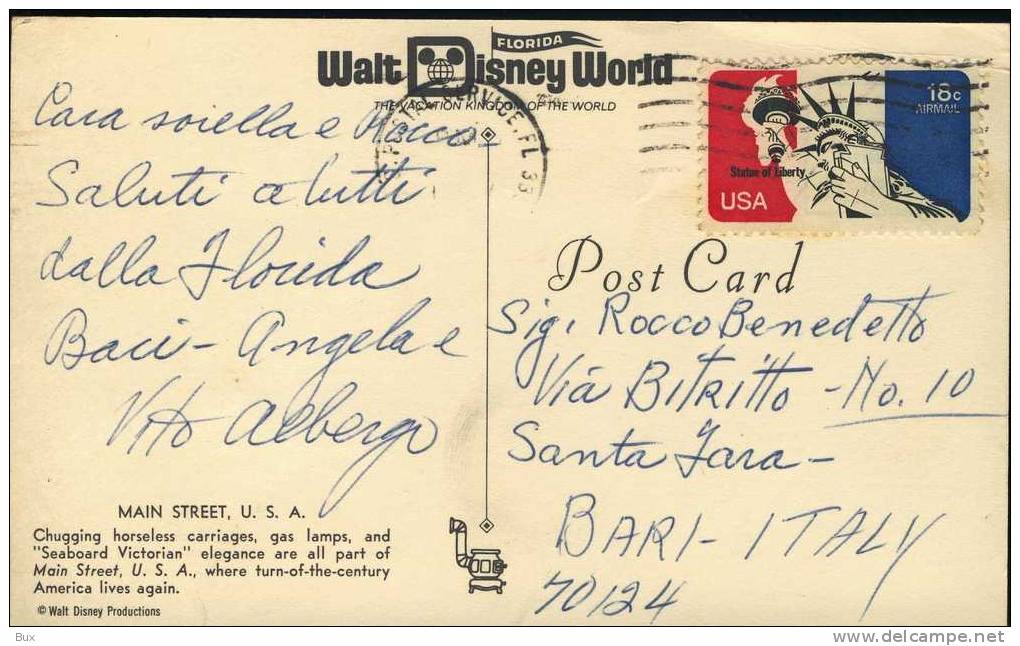 FLORIDA
Walt Disney World
THE VACATION KINGDOM OF THE WORLD
18c
AIRMAIL
Statue of Liberty
USA
SERVICE, FL
Cara sorella e Rocco
Saluti a tutti
dalla Florida
Baci - Angela e
Vito Albergo
Post Card
Sig. Rocco Benedetto
Via Bitritto - No. 10
Santa Fara -
BARI - ITALY
70124
MAIN STREET, U. S. A.
Chugging horseless carriages, gas lamps, and
"Seaboard Victorian" elegance are all part of
Main Street, U. S. A., where turn-of-the-century
America lives again.
© Walt Disney Productions
Bux
delcampe.net